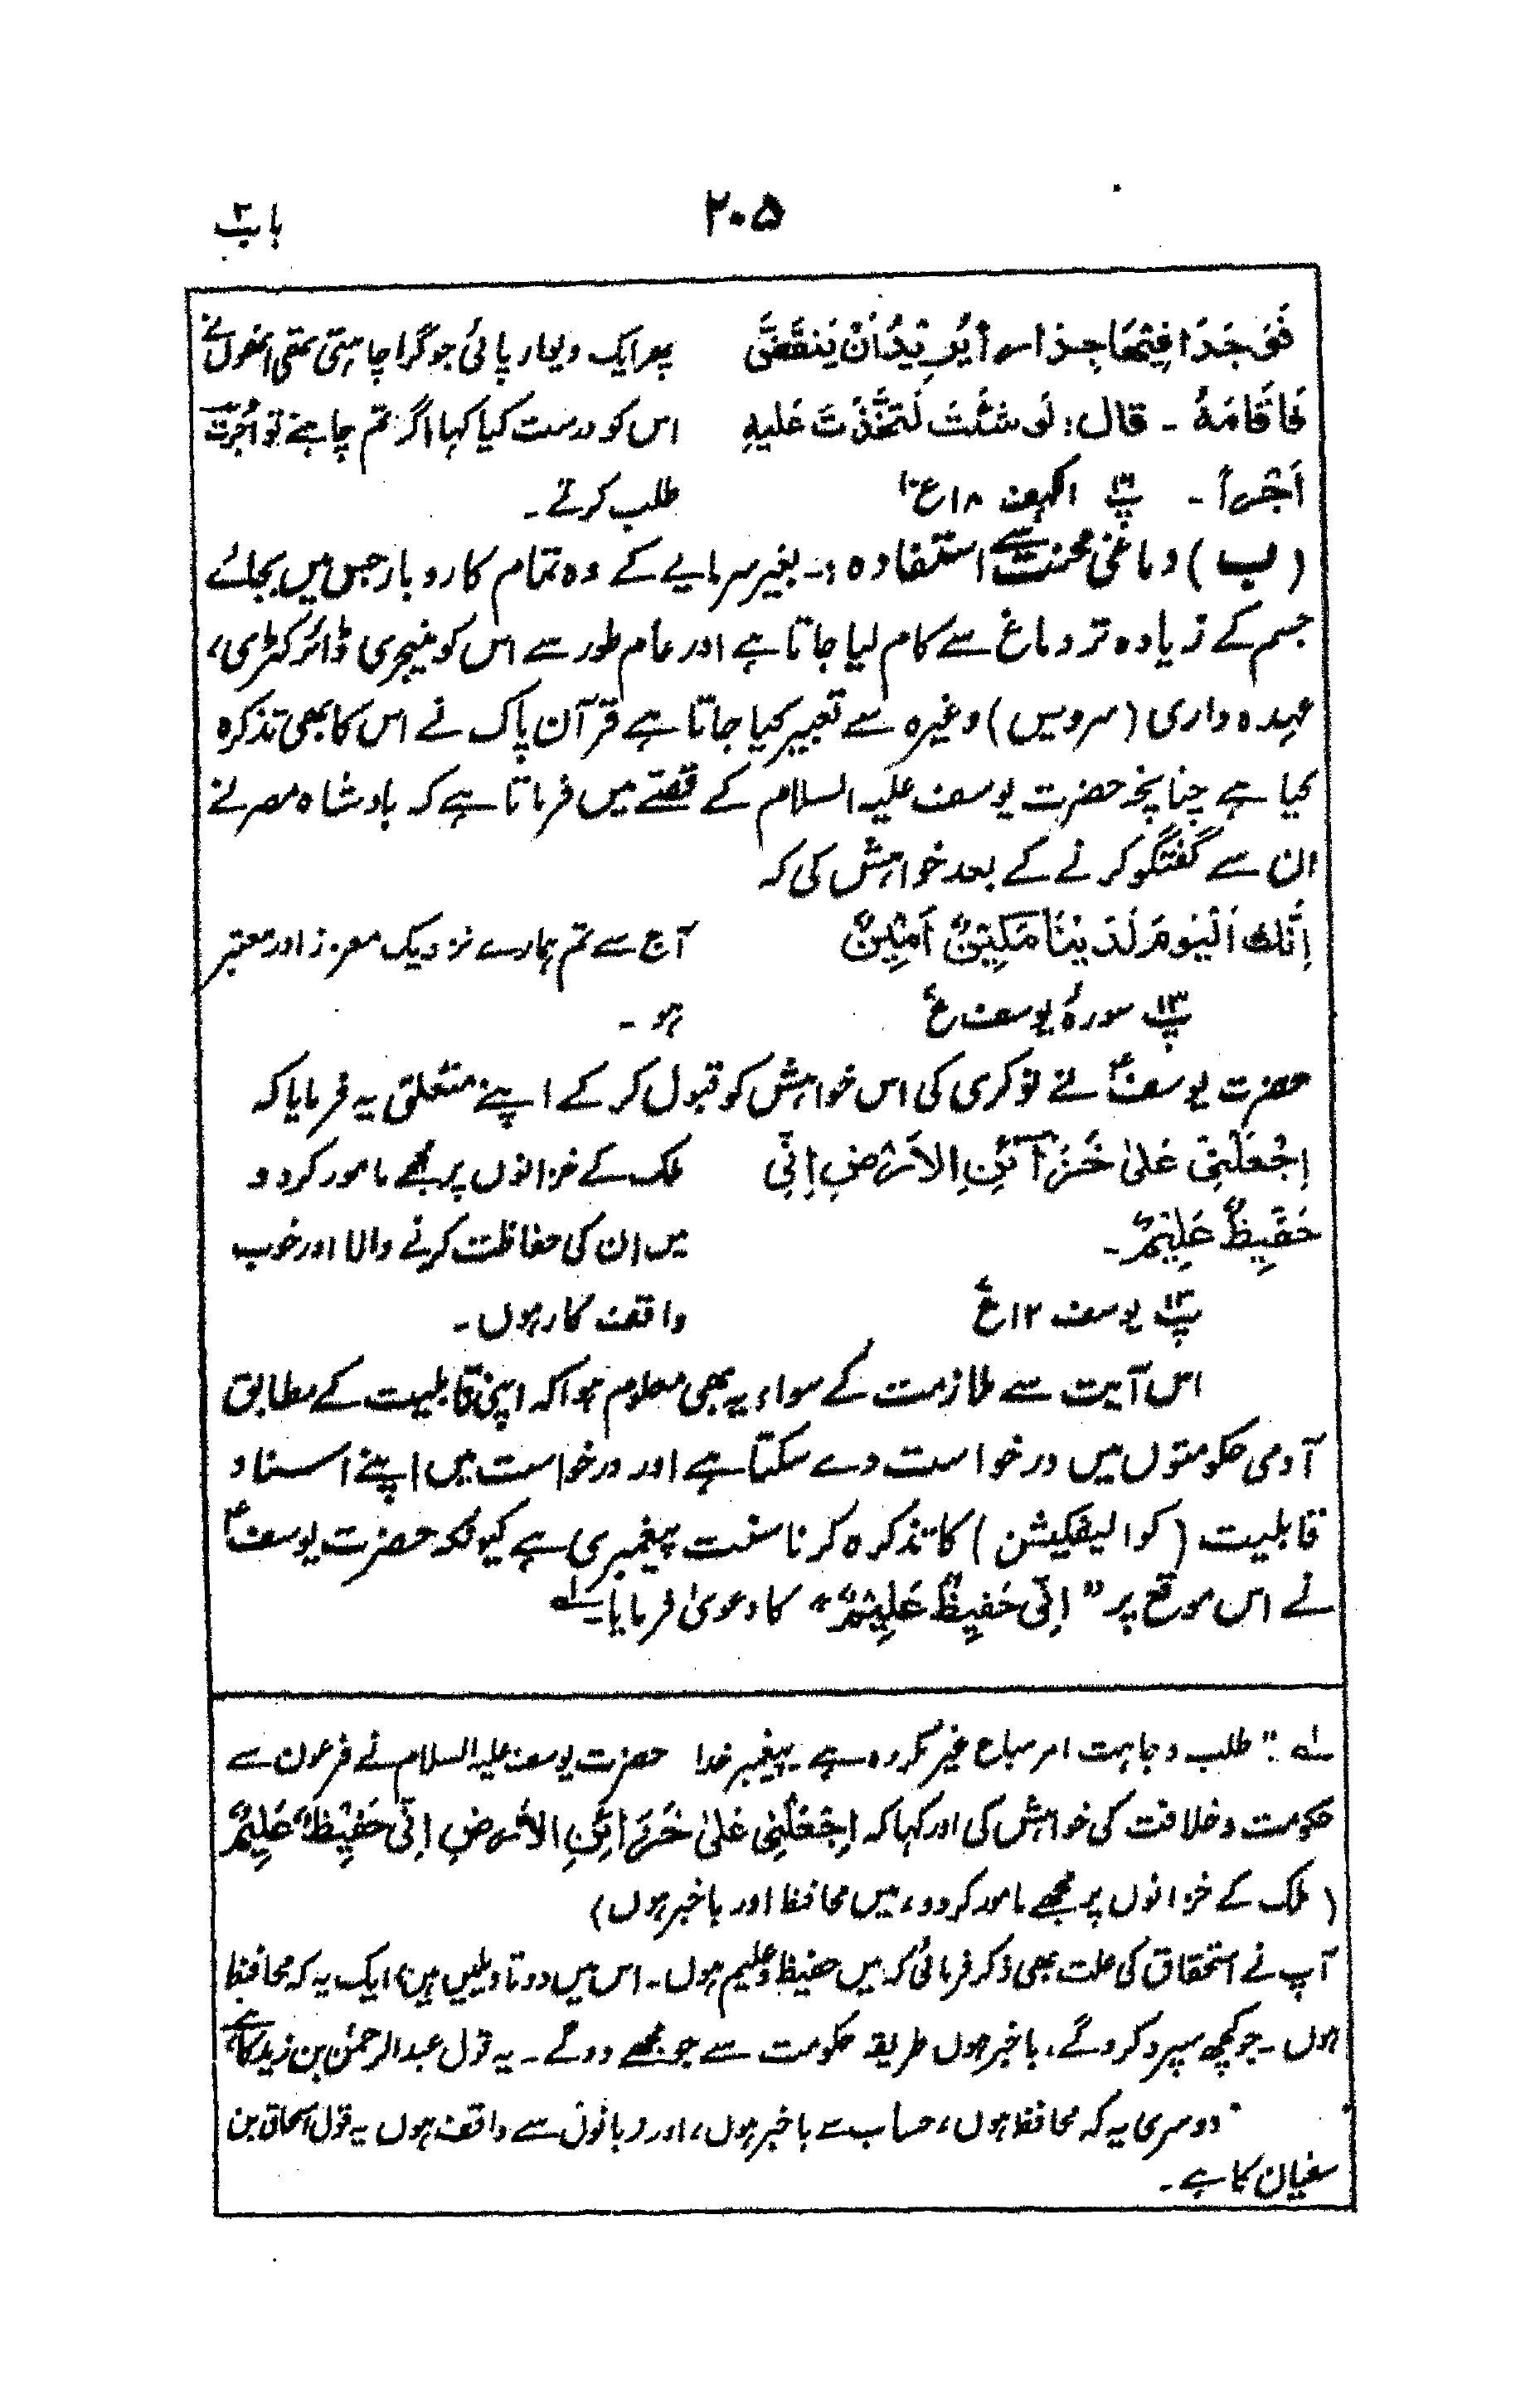 ۲۰۵
باب ۳
فَوَجَدَا فِیْھَا جِدَاراً یُرِیْدُ اَنْ یَنْقَضَّ پھر ایک دیوار پائی جو گرا چاہتی تھی انھوں نے
فَاَقَامَهٗ ۔ قال: لَو شئتَ لَتَّخَذْتَ عَلیهِ اس کو درست کیا کہا اگر تم چاہتے تو اُجرت
اَجْراً ۔ پ۱۶ الکہف ۱۸ ع۱۰ طلب کرتے ۔
(ب) دماغی محنت سے استفادہ :۔ بغیر سرمایے کے وہ تمام کاروبار جس میں بجائے
جسم کے زیادہ تر دماغ سے کام لیا جاتا ہے اور عام طور سے اس کو منیجری ڈائرکٹری،
عہدہ داری (سرویس) وغیرہ سے تعبیر کیا جاتا ہے قرآن پاک نے اس کا بھی تذکرہ
کیا ہے چنانچہ حضرت یوسف علیہ السلام کے قصّے میں فرماتا ہے کہ بادشاہ مصر نے
ان سے گفتگو کرنے کے بعد خواہش کی کہ
اِنَّكَ اَلْیَوْمَ لَدَیْنَا مَكِیْنٌ اَمِیْنٌ آج سے تم ہمارے نزدیک معزز اور معتبر
پ۱۳ سورۂ یوسف ع ہو ۔
حضرت یوسفؑ نے نوکری کی اس خواہش کو قبول کر کے اپنے متعلق یہ فرمایا کہ
اِجْعَلْنِیْ عَلیٰ خَزَآئِنِ الاَرْضِ اِنِّی ملک کے خزانوں پر مجھے مامور کردو
حَفِیْظٌ عَلِیْمٌ۔ میں ان کی حفاظت کرنے والا اور خوب
پ۱۳ یوسف ۱۲ ع واقف کار ہوں ۔
اس آیت سے ملازمت کے سواء یہ بھی معلوم ہوا کہ اپنی قابلیت کے مطابق
آدمی حکومتوں میں درخواست دے سکتا ہے اور درخواست میں اپنے اسناد
قابلیت (کوالیفکیشن) کا تذکرہ کرنا سنت پیغمبری ہے کیونکہ حضرت یوسفؑ
نے اس موقع پر ” اِنِّی حَفِیظٌ عَلِیْمٌ “ کا دعویٰ فرمایا۔ ؎۱
؎۱ :" طلب وجاہت امر مباح غیر مکروہ ہے ۔ پیغمبر خدا حضرت یوسف علیہ السلام نے فرعون سے
حکومت و خلافت کی خواہش کی اور کہا کہ اِجْعَلْنِی عَلیٰ خَزَائِنِ الاَرضِ اِنِّی حَفِیْظٌ عَلِیْمٌ
(ملک کے خزانوں پر مجھے مامور کردو، میں محافظ اور باخبر ہوں)
آپ نے استحقاق کی علت بھی ذکر فرمائی کہ میں حفیظ و علیم ہوں ۔ اس میں دو تاویلیں ہیں، ایک یہ کہ محافظ
ہوں ۔ جو کچھ سپرد کرو گے، باخبر ہوں طریقہ حکومت سے جو مجھے دو گے ۔ یہ قول عبدالرحمٰن بن زید کا ہے
" دوسری یہ کہ محافظ ہوں، حساب سے باخبر ہوں، اور زبانوں سے واقف ہوں یہ قول اسحاق بن
سفیان کا ہے ۔